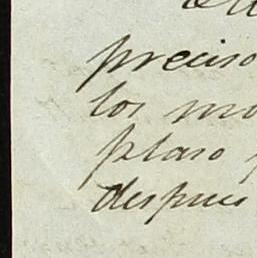 preciso
los mo
plaso
despues